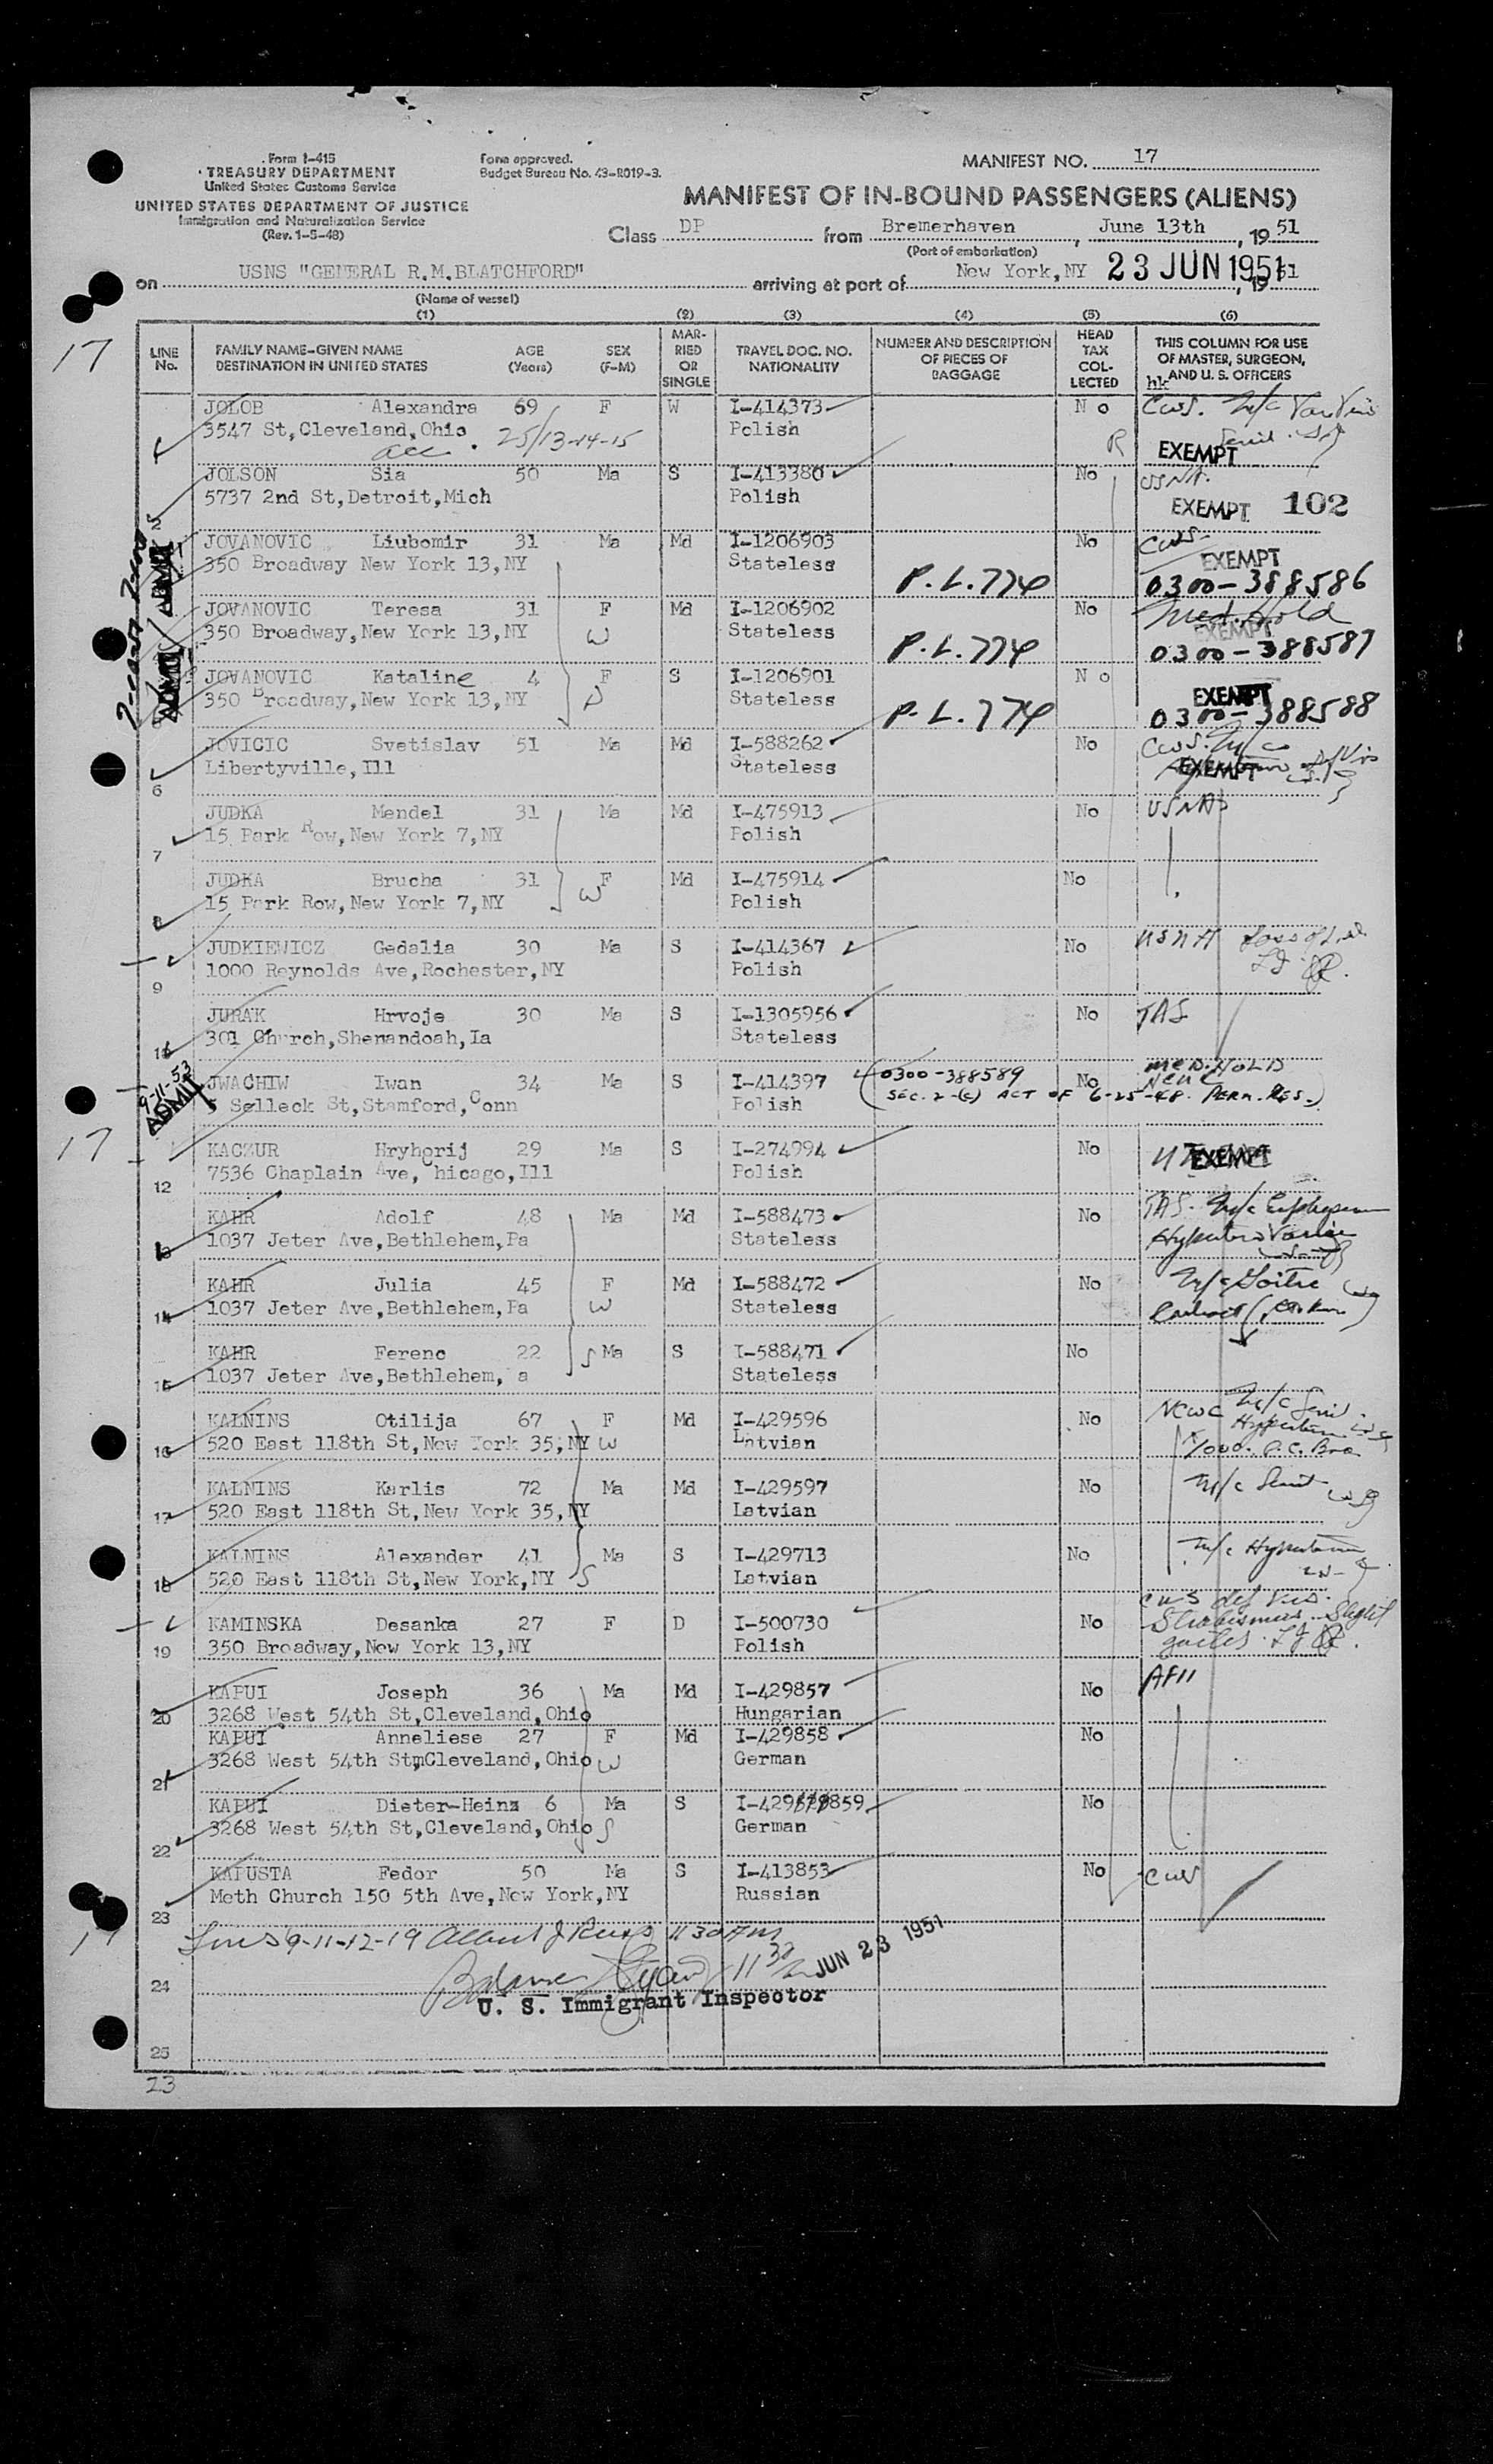 Form I-415
TREASURY DEPARTMENT
United States Customs Service
UNITED STATES DEPARTMENT OF JUSTICE
Immigration and Naturalization Service
(Rev. 1-5-48)
Form approved.
Budget Bureau No. 43-R019-3.
MANIFEST NO. 17
MANIFEST OF IN-BOUND PASSENGERS (ALIENS)
Class DP from Bremerhaven, June 13th, 1951
(Port of embarkation)
on USNS "GENERAL R.M.BLATCHFORD" arriving at port of New York,NY 23 JUN 1951, 1951
(Name of vessel)
(1) (2) (3) (4) (5) (6)
17
LINE No.
FAMILY NAME-GIVEN NAME
DESTINATION IN UNITED STATES
AGE (Years)
SEX (F-M)
MARRIED OR SINGLE
TRAVEL DOC. NO. NATIONALITY
NUMBER AND DESCRIPTION OF PIECES OF BAGGAGE
HEAD TAX COLLECTED
THIS COLUMN FOR USE OF MASTER, SURGEON, AND U. S. OFFICERS
hk
JOLOB Alexandra 69 F W I-414373 No CWS.
3547 St,Cleveland,Ohio Polish R EXEMPT
25/13-14-15
JOLSON Sia 50 Ma S I-413380 No USNA.
5737 2nd St,Detroit,Mich Polish EXEMPT 102
JOVANOVIC Liubomir 31 Ma Md I-1206903 No CWS-
350 Broadway New York 13,NY Stateless EXEMPT
P.L.774 0300-388586
ADMIT
JOVANOVIC Teresa 31 F Md I-1206902 No Med. Hold
350 Broadway,New York 13,NY W Stateless EXEMPT
P.L.774 0300-388587
ADMIT
JOVANOVIC Kataline 4 F S I-1206901 No
350 Broadway,New York 13,NY D Stateless EXEMPT
P.L.774 0300-388588
JOVICIC Svetislav 51 Ma Md I-588262 No CWS.
Libertyville,Ill Stateless EXEMPT
6
JUDKA Mendel 31 Ma Md I-475913 No USNA
15 Park Row,New York 7,NY Polish
7
JUDKA Brucha 31 F Md I-475914 No
15 Park Row,New York 7,NY W Polish
8
JUDKIEWICZ Gedalia 30 Ma S I-414367 No USNA Loss of
1000 Reynolds Ave,Rochester,NY Polish
9
JURAK Hrvoje 30 Ma S I-1305956 No IAS
301 Church,Shenandoah,Ia Stateless
10
9-11-53
ADMIT
JWACHIW Iwan 34 Ma S I-414397 (0300-388589 No MED.HOLD
5 Selleck St,Stamford,Conn Polish SEC. 2-(c) ACT OF 6-25-48. PERM. RES.)
17
KACZUR Hryhorij 29 Ma S I-274994 No
7536 Chaplain Ave,Chicago,Ill Polish EXEMPT
12
KAHR Adolf 48 Ma Md I-588473 No
1037 Jeter Ave,Bethlehem,Pa Stateless
13
KAHR Julia 45 F Md I-588472 No Goitre
1037 Jeter Ave,Bethlehem,Pa W Stateless
14
KAHR Ferenc 22 S Ma S I-588471 No
1037 Jeter Ave,Bethlehem, a Stateless
15
KALNINS Otilija 67 F Md I-429596 No NCWC
520 East 118th St,New York 35,NY W Latvian
16
KALNINS Karlis 72 Ma Md I-429597 No
520 East 118th St,New York 35,NY Latvian
17
KALNINS Alexander 41 Ma S I-429713 No
520 East 118th St,New York,NY S Latvian
18
KAMINSKA Desanka 27 F D I-500730 No CWS def Vis.
350 Broadway,New York 13,NY Polish Strabismus. Slight
19
KAPUI Joseph 36 Ma Md I-429857 No
3268 West 54th St,Cleveland,Ohio Hungarian
20
KAPUI Anneliese 27 F Md I-429858 No
3268 West 54th StmCleveland,Ohio W German
21
KAPUI Dieter-Heinz 6 Ma S I-429859 No
3268 West 54th St,Cleveland,Ohio S German
22
KAPUSTA Fedor 50 Ma S I-413853 No CWS
Meth Church 150 5th Ave,New York,NY Russian
23
17
Lines 9-11-12-19 Albert J 11 30 AM
Balance 11 30 JUN 23 1951
U. S. Immigrant Inspector
24
25
23